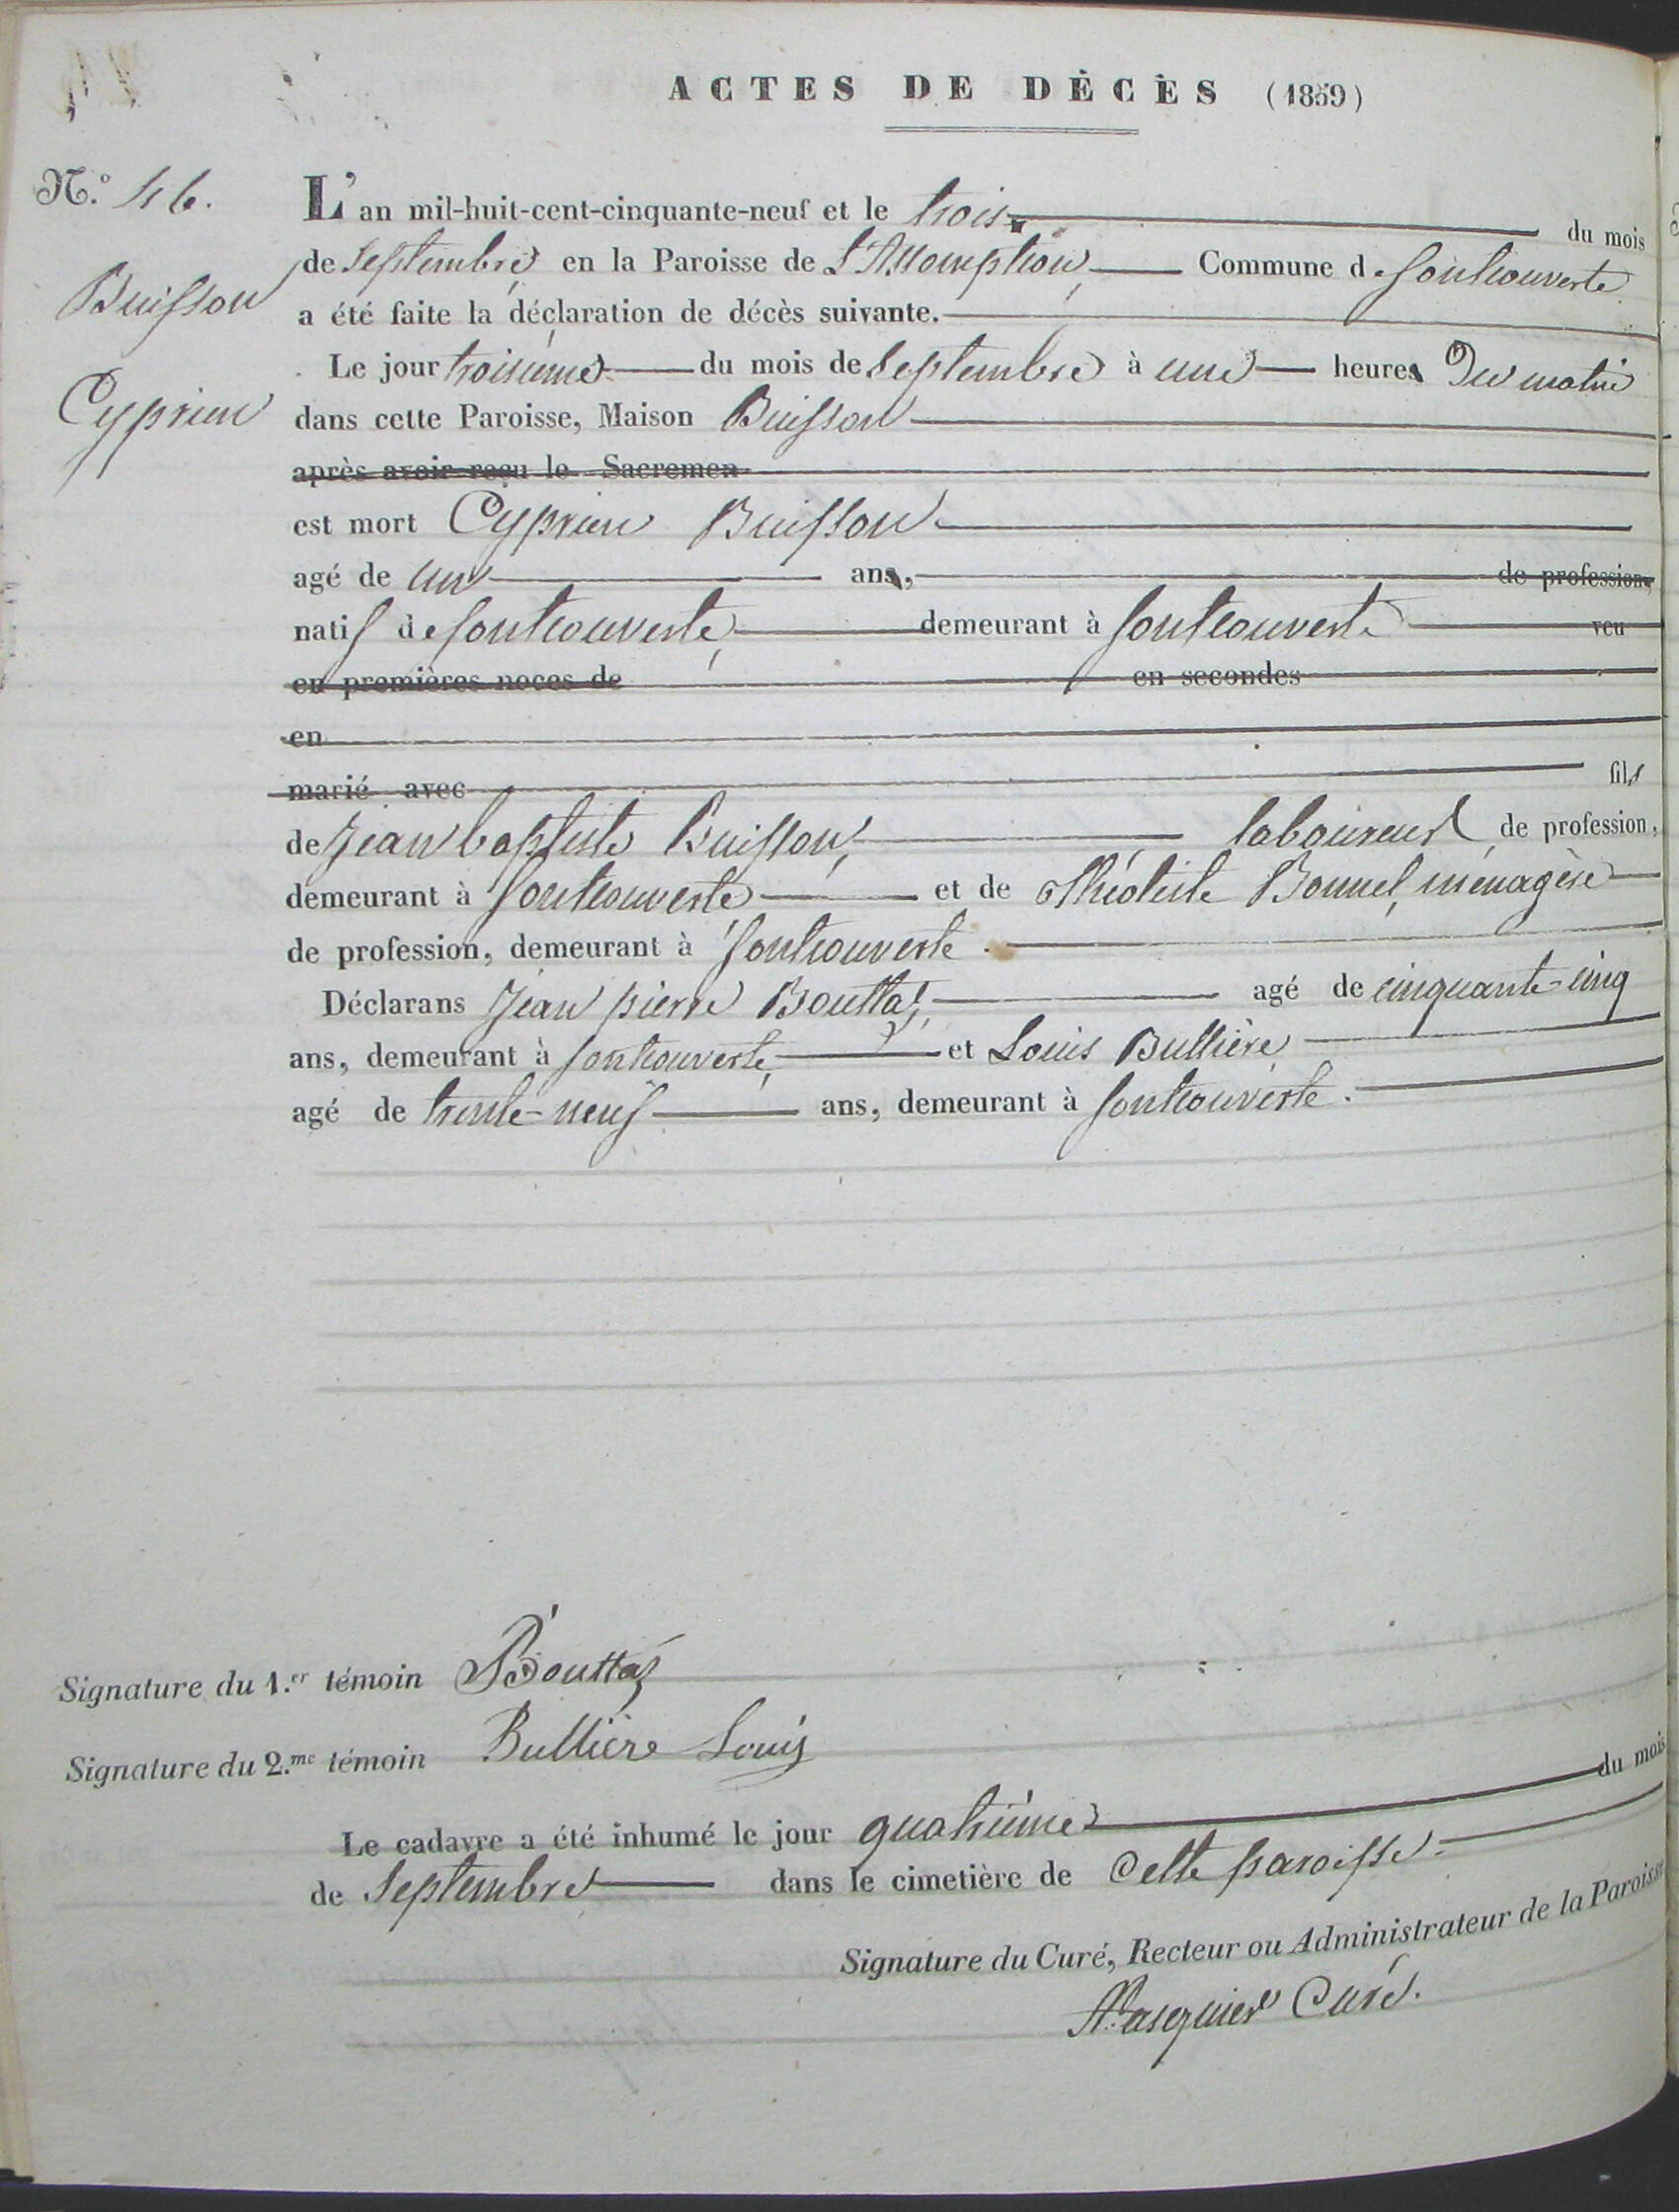 ACTES DE DÉCÈS (1859)
N.° 46.
L'an mil-huit-cent-cinquante-neuf et le trois du mois
de Septembre en la Paroisse de L'Assomption, Commune de Fontcouverte
Buisson
a été faite la déclaration de décès suivante.
Le jour troisième du mois de Septembre à une heure Du matin
Cyprien
dans cette Paroisse, Maison Buisson
après avoir reçu le Sacremen
est mort Cyprien Buisson
agé de un an, de profession,
natif de fontcouverte, demeurant à fontcouverte veu
en premières noces de en secondes
en
marié avec fils
de Jean baptiste Buisson, laboureur, de profession,
demeurant à fontcouverte et de Théotiste Bonnel, ménagère
de profession, demeurant à fontcouverte.
Déclarans Jean pierre Bouttaz, agé de cinquante-cinq
ans, demeurant à fontcouverte, et Louis Bullière
agé de trente-neuf ans, demeurant à fontcouverte.
Signature du 1.er témoin Bouttaz
Signature du 2.me témoin Bullière Louis
Le cadavre a été inhumé le jour quatrième du mois
de Septembre dans le cimetière de Cette paroisse.
Signature du Curé, Recteur ou Administrateur de la Paroisse
Pasquier Curé.